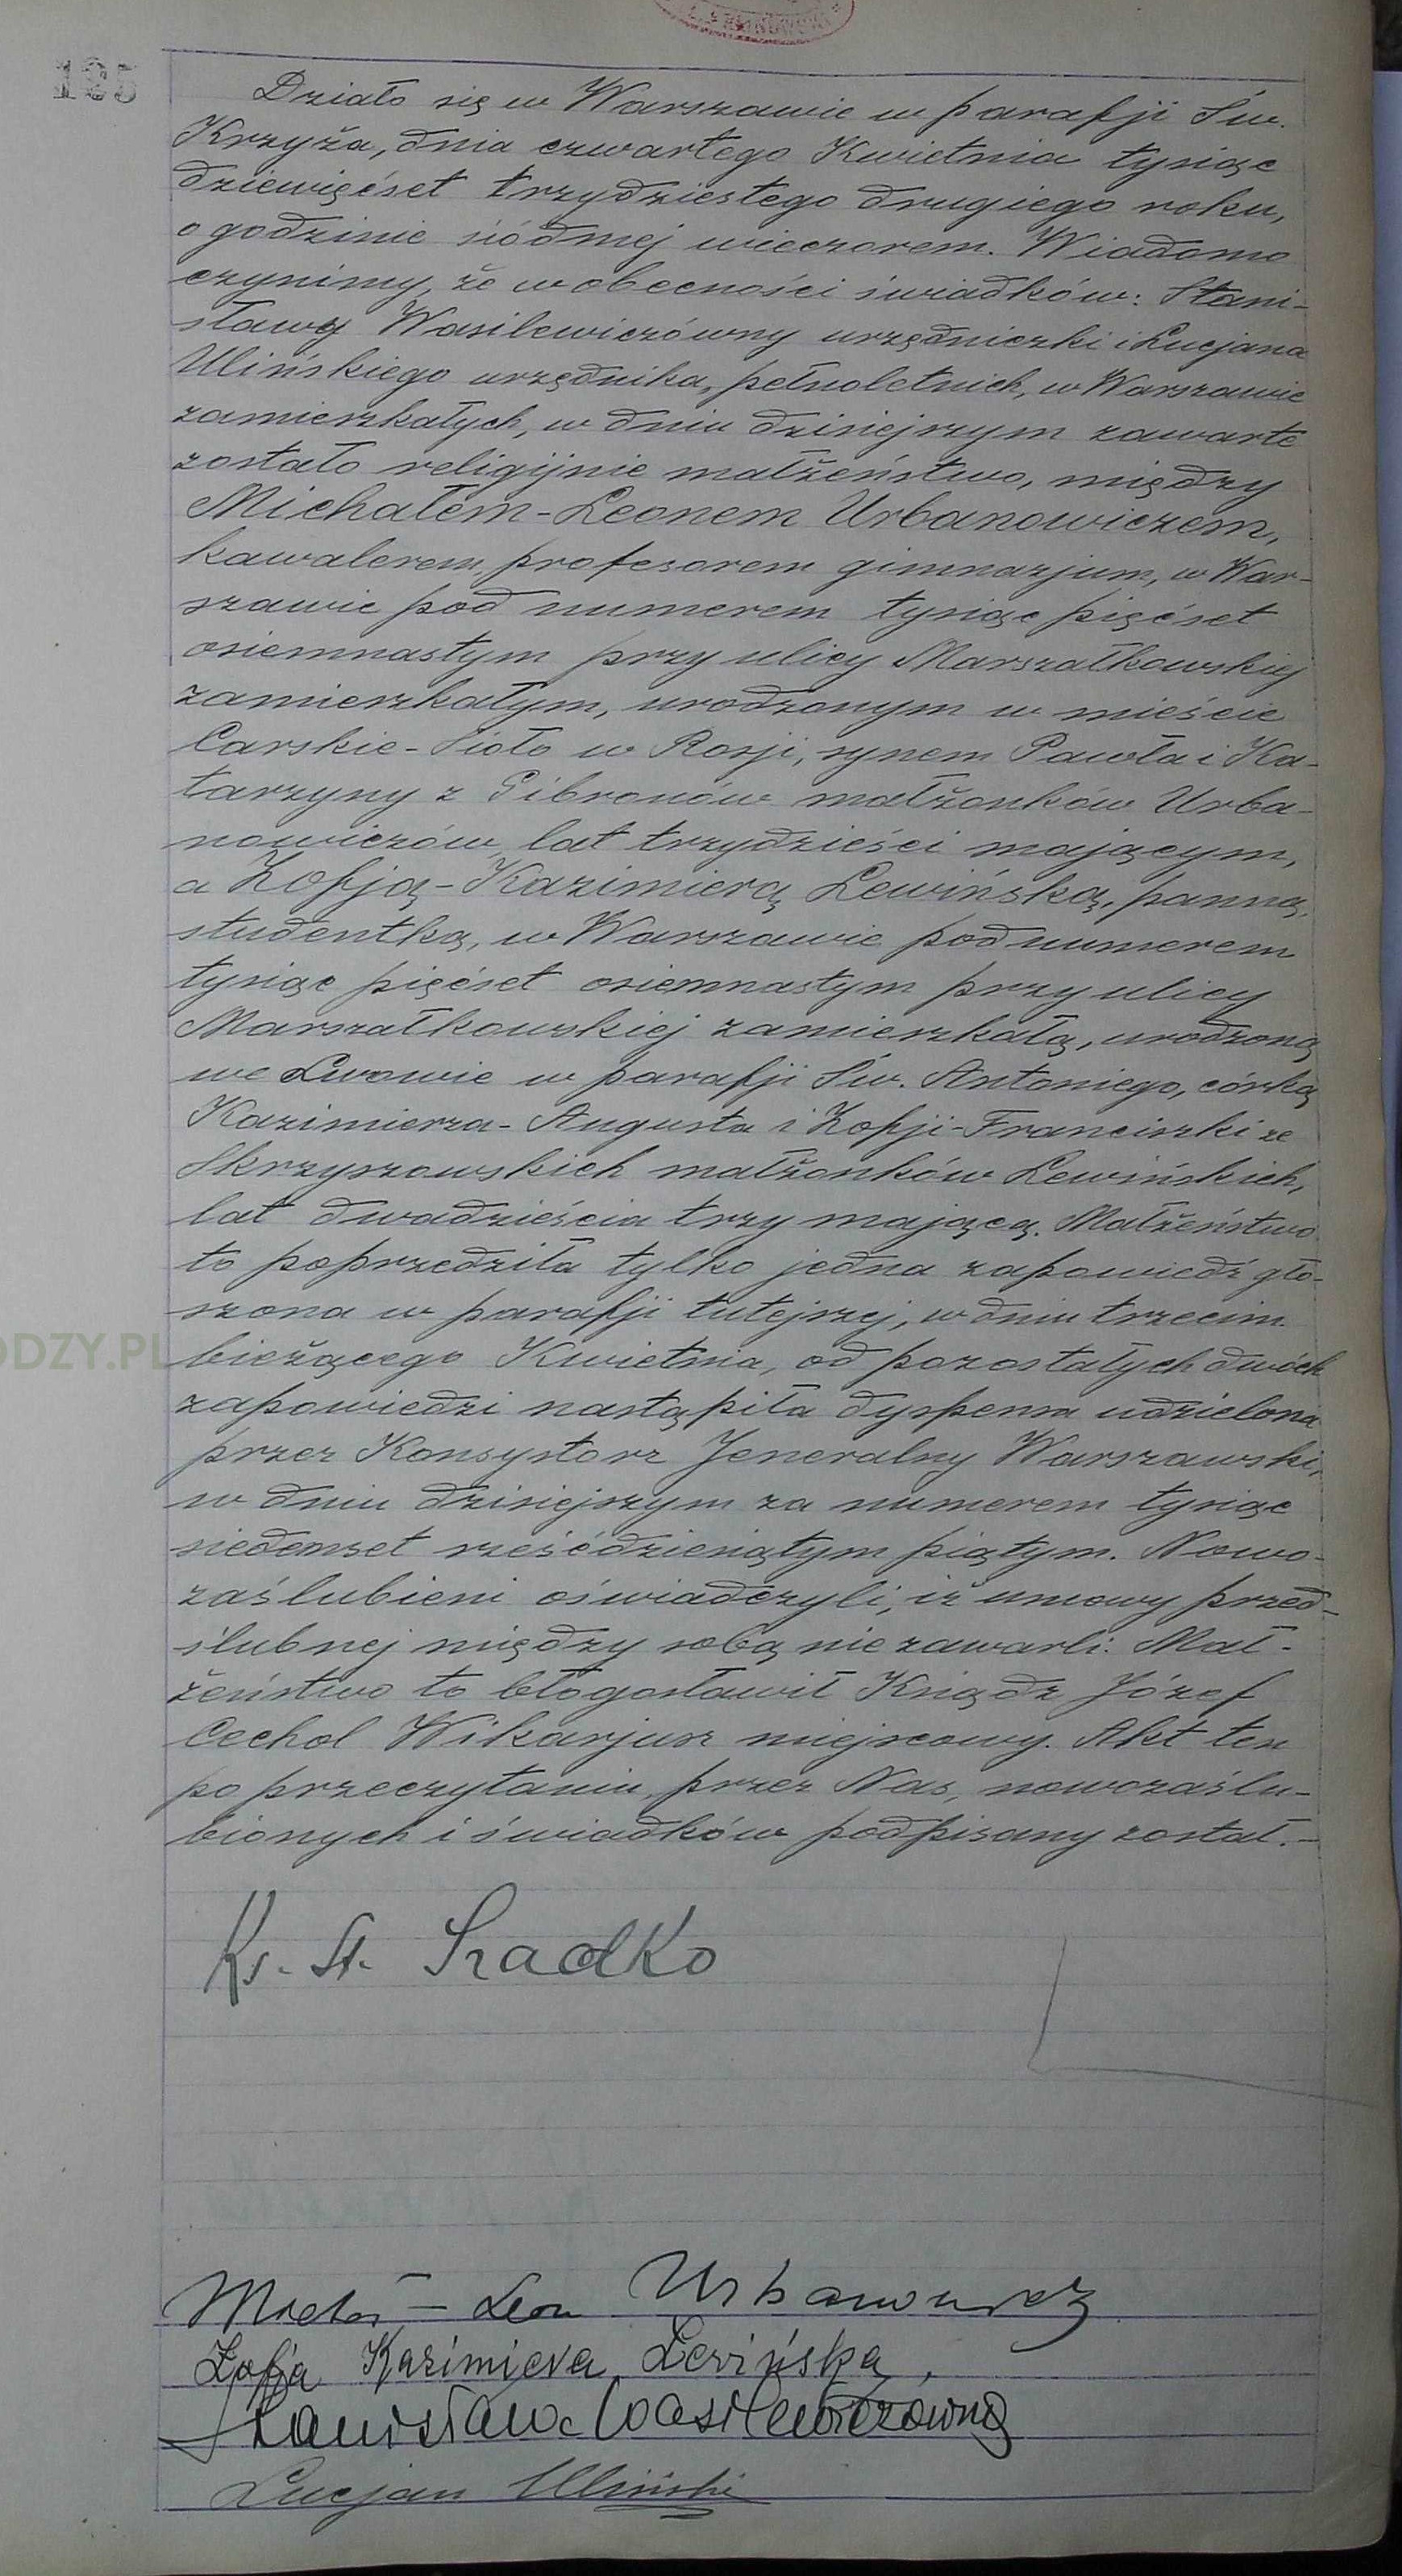 195
Działo się w Warszawie w parafji Św.
Krzyża, dnia czwartego Kwietnia tysiąc
dziewięćset trzydziestego drugiego roku,
o godzinie siódmej wieczorem. Wiadomo
czynimy, że w obecności świadków: Stani-
sławy Wasilewiczówny urzędniczki i Lucjana
Ulińskiego urzędnika, pełnoletnich, w Warszawie
zamieszkałych, w dniu dzisiejszym zawarte
zostało religijnie małżeństwo, między
Michałem-Leonem Urbanowiczem,
kawalerem, profesorem gimnazjum, w War-
szawie pod numerem tysiąc pięćset
osiemnastym przy ulicy Marszałkowskiej
zamieszkałym, urodzonym w mieście
Carskie-Sioło w Rosji, synem Pawła i Ka-
tarzyny z Gibronów małżonków Urba-
nowiczów, lat trzydzieści mającym,
a Zofją-Kazimierą Lewińską, panną,
studentką, w Warszawie pod numerem
tysiąc pięćset osiemnastym przy ulicy
Marszałkowskiej zamieszkałą, urodzoną
we Lwowie w parafji Św. Antoniego, córką
Kazimierza-Augusta i Zofji-Franciszki ze
Skrzyszowskich małżonków Lewińskich,
lat dwadzieścia trzy mającą. Małżeństwo
to poprzedziła tylko jedna zapowiedź gło-
szona w parafji tutejszej, w dniu trzecim
bieżącego Kwietnia, od pozostałych dwóch
zapowiedzi nastąpiła dyspensa udzielona
przez Konsystorz Jeneralny Warszawski,
w dniu dzisiejszym za numerem tysiąc
siedemset sześćdziesiątym piątym. Nowo-
zaślubieni oświadczyli, iż umowy przed-
ślubnej między sobą nie zawarli. Mał-
żeństwo to błogosławił Ksiądz Józef
Cechol Wikarjusz miejscowy. Akt ten
po przeczytaniu, przez Nas, nowozaślu-
bionych i świadków podpisany został.-
Ks. St. Sradko
Michał - Leon Urbanowicz
Zofja Kazimiera Lewińska,
Stanisława Wasilewiczówna
Lucjan Uliński
ODZY.PL